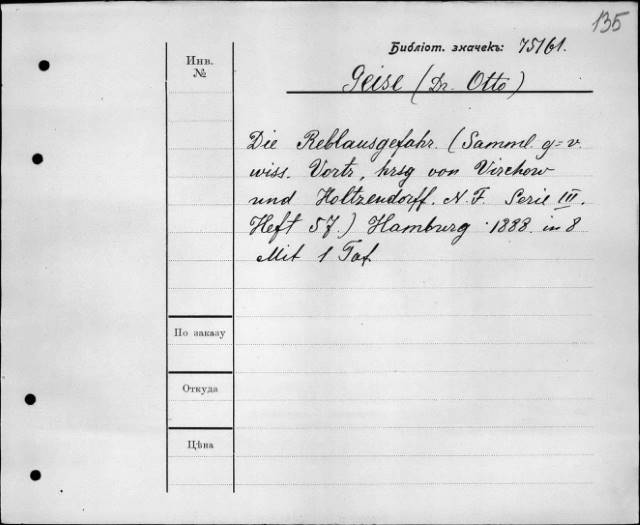 135
Библіот. значекъ: 75161.
Инв.
№
Geise (Dr. Otto)
Die Reblausgefahr. (Samml. g=v.
wiss. Vortr., hrsg von Virchow
und Holtzendorff. N. F. Serie III.
Heft 57.) Hamburg 1888. in 8
Mit 1 Taf.
По заказу
Откуда
Цѣна